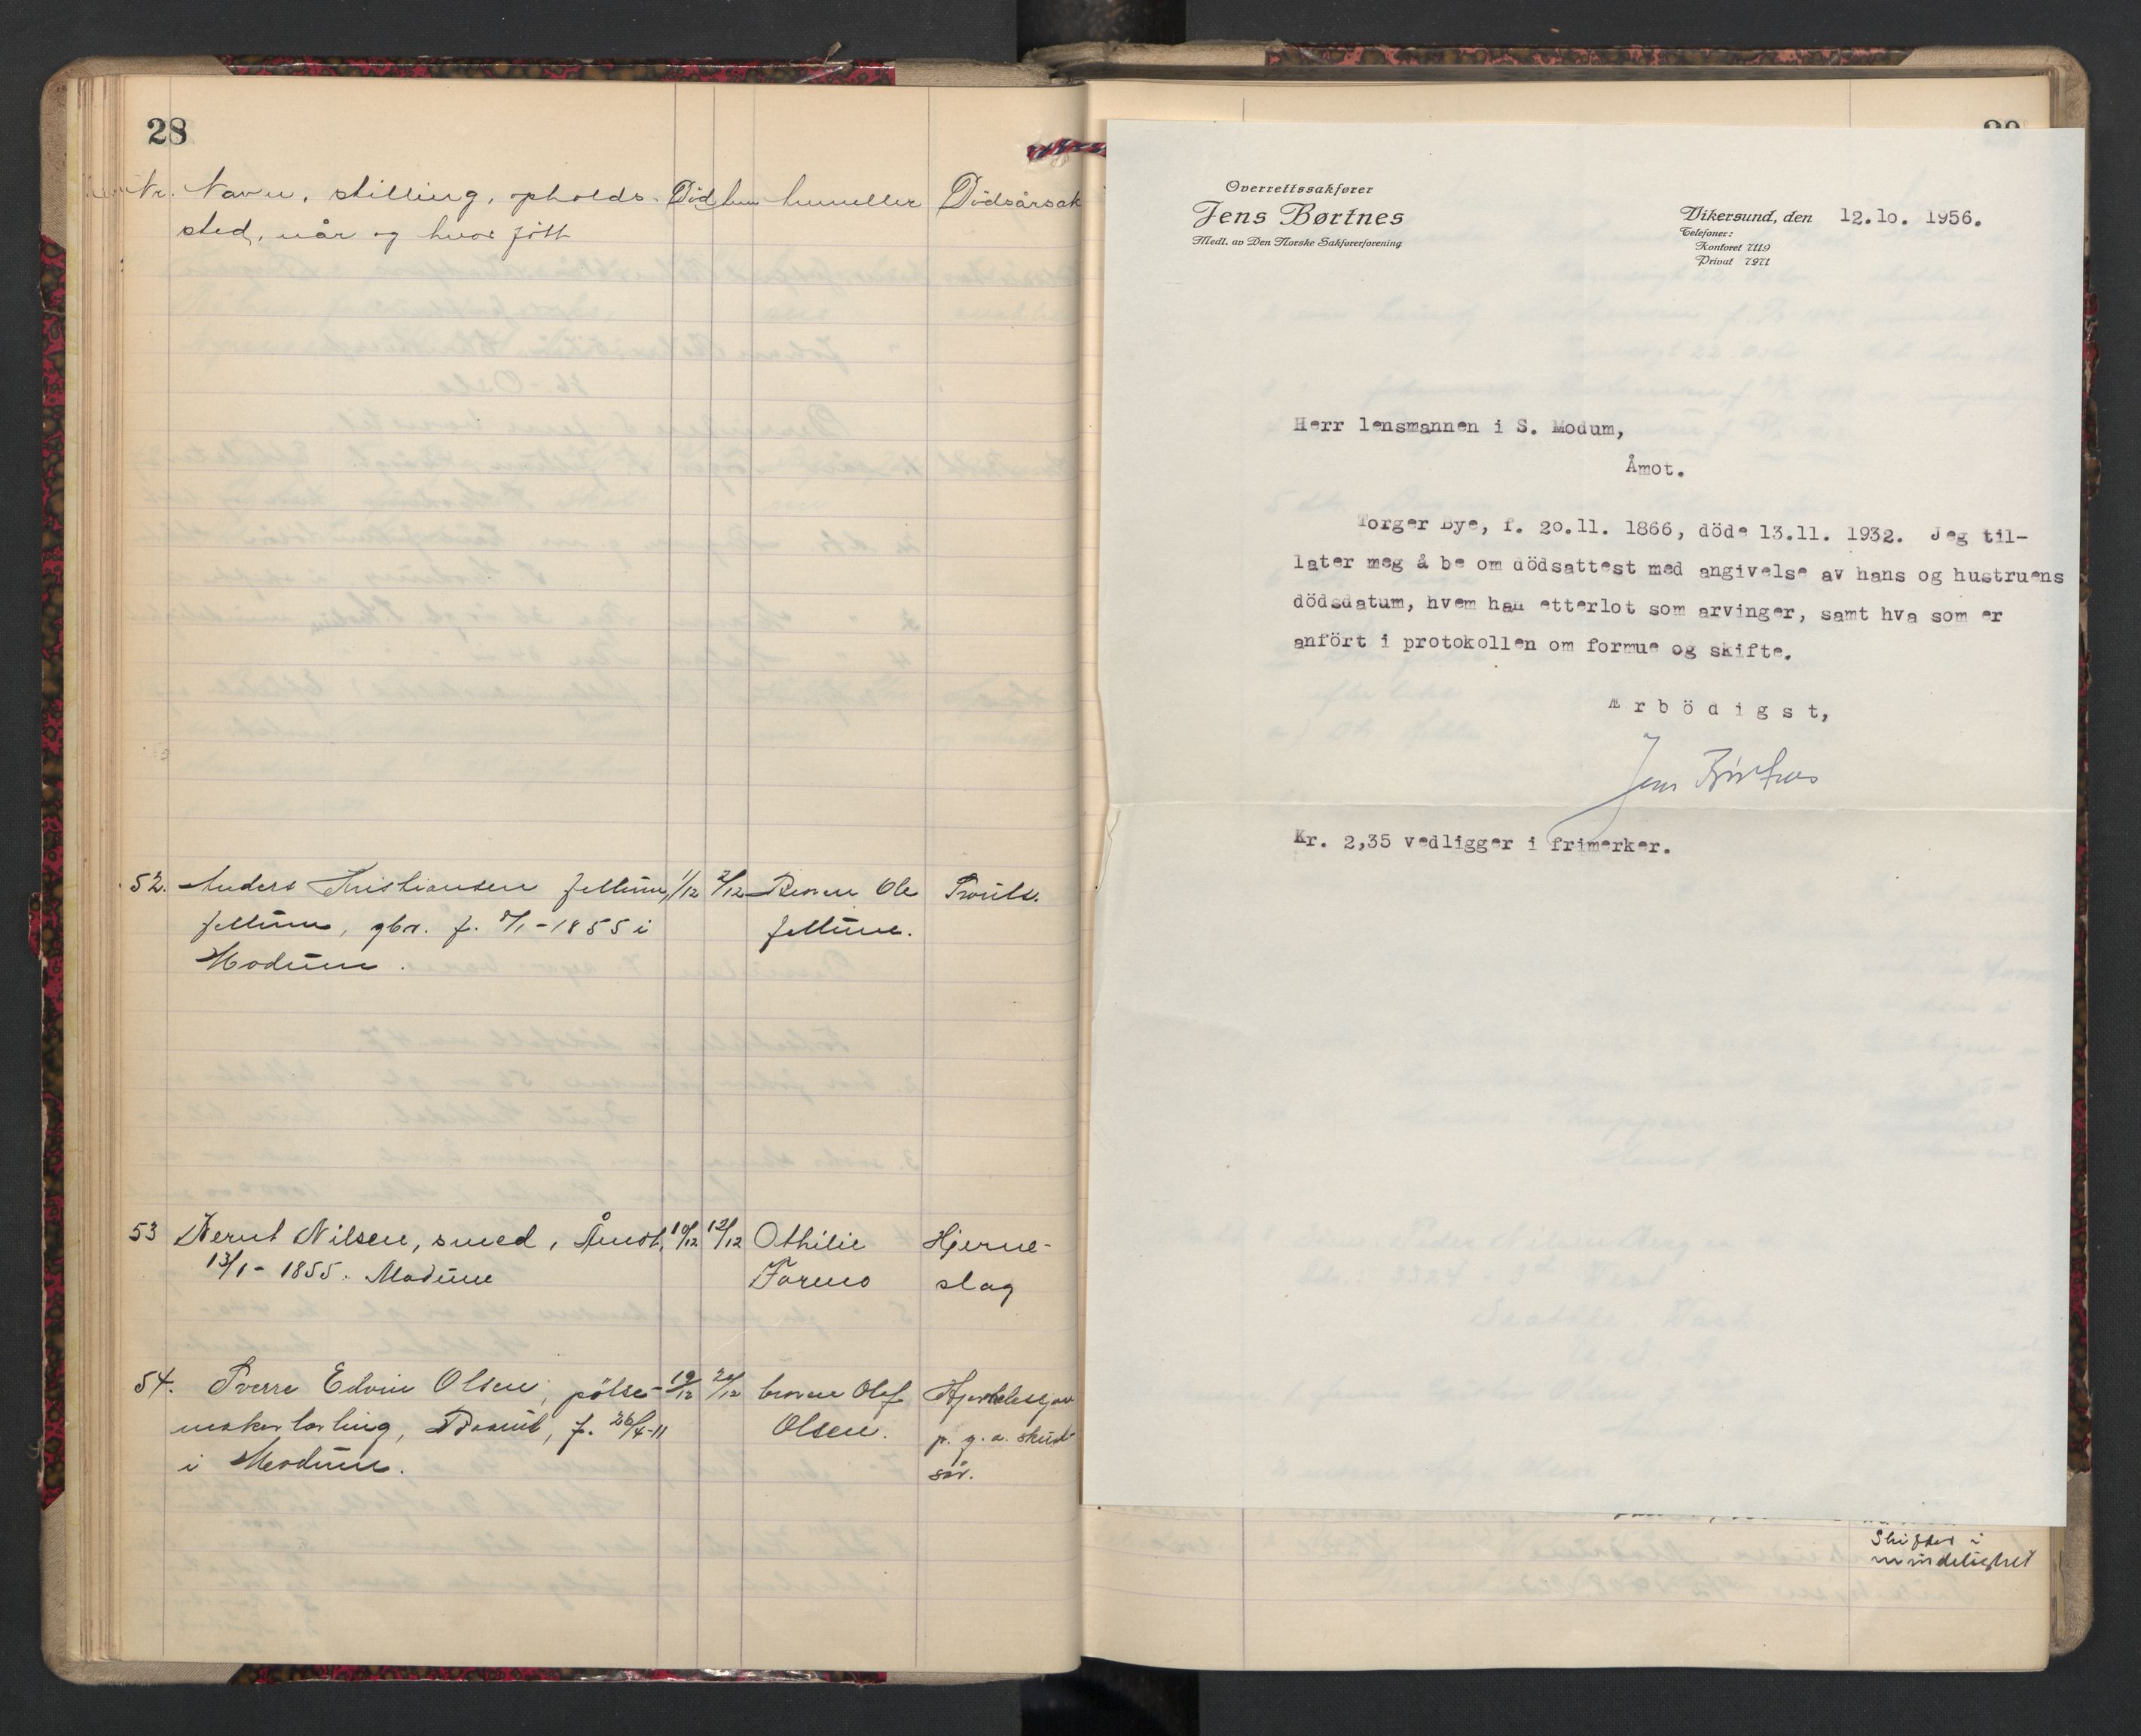 28
Nr. Navn, stilling, opholds- Död hvem anmelder Dödsårsak
sted, når og hvor fött
52. Anders Kristiansen Jellum, 1/12 2/12 Ole Svuls.
Jellum, gbr. f. 7/1-1855 i Jellum.
Modum.
53 Bernt Nilsen, smed, Åmot, 10/12 12/12 Othilie Hjerne-
13/1-1855. Modum Formo slag
54. Sverre Edvin Olsen, pölse- 19/12 20/12 Olaf
makerlærling, f. 26/4-11 Olsen. p. g. a. skud-
i Modum. sår.
Overrettssakfører
Jens Børtnes
Medl. av Den Norske Sakførerforening
Vikersund, den 12.10. 1956.
Telefoner:
Kontoret 7119
Privat 7271
Herr lensmannen i S. Modum,
Åmot.
Torger Bye, f. 20.11. 1866, döde 13.11. 1932. Jeg til-
later meg å be om dödsattest med angivelse av hans og hustruens
dödsdatum, hvem han etterlot som arvinger, samt hva som er
anfört i protokollen om formue og skifte.
Ærbödigst,
Jens Børtnes
Kr. 2,35 vedligger i frimerker.
Skiftes i
mindelighet